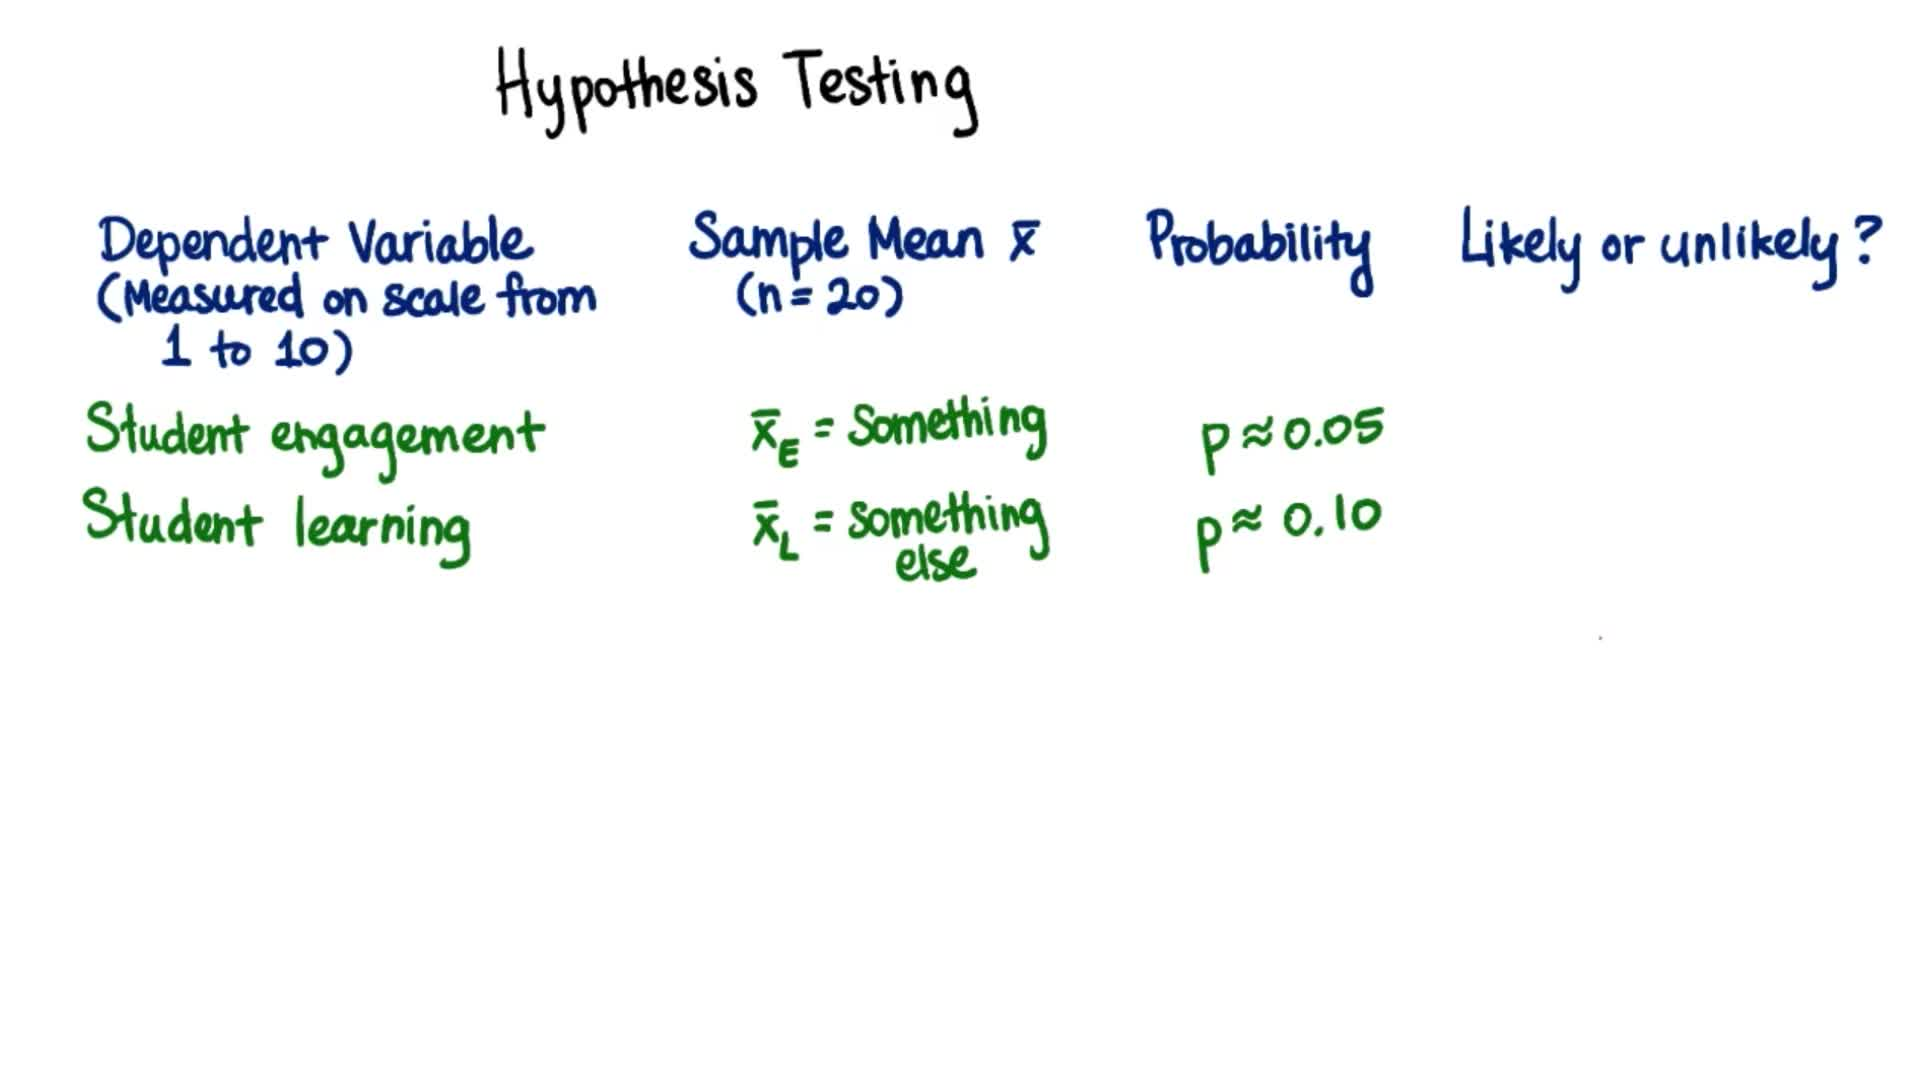 Hypothesis Testing
Dependent Variable
(Measured on scale from
1 to 10)
Sample Mean x̄
(n = 20)
Probability
Likely or unlikely?
Student engagement
x̄_E = Something
p ≈ 0.05
Student learning
x̄_L = something
else
p ≈ 0.10